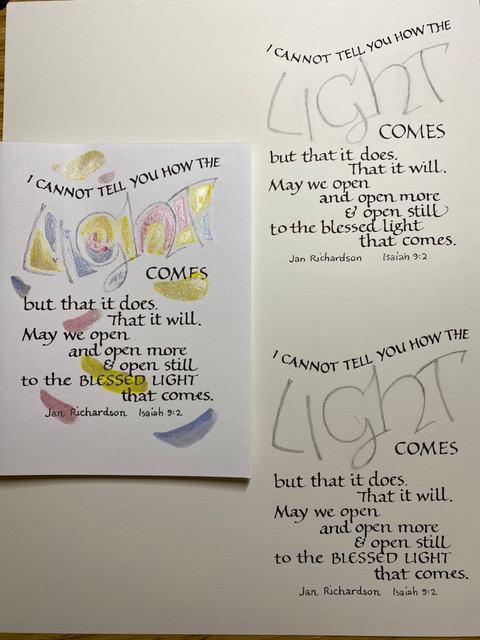 I CANNOT TELL YOU HOW THE
Light
COMES
but that it does.
That it will.
May we open
and open more
& open still
to the BLESSED LIGHT
that comes.
Jan Richardson Isaiah 9:2
I CANNOT TELL YOU HOW THE
Light
COMES
but that it does.
That it will.
May we open
and open more
& open still
to the blessed light
that comes.
Jan Richardson Isaiah 9:2
I CANNOT TELL YOU HOW THE
Light
COMES
but that it does.
That it will.
May we open
and open more
& open still
to the BLESSED LIGHT
that comes.
Jan Richardson Isaiah 9:2